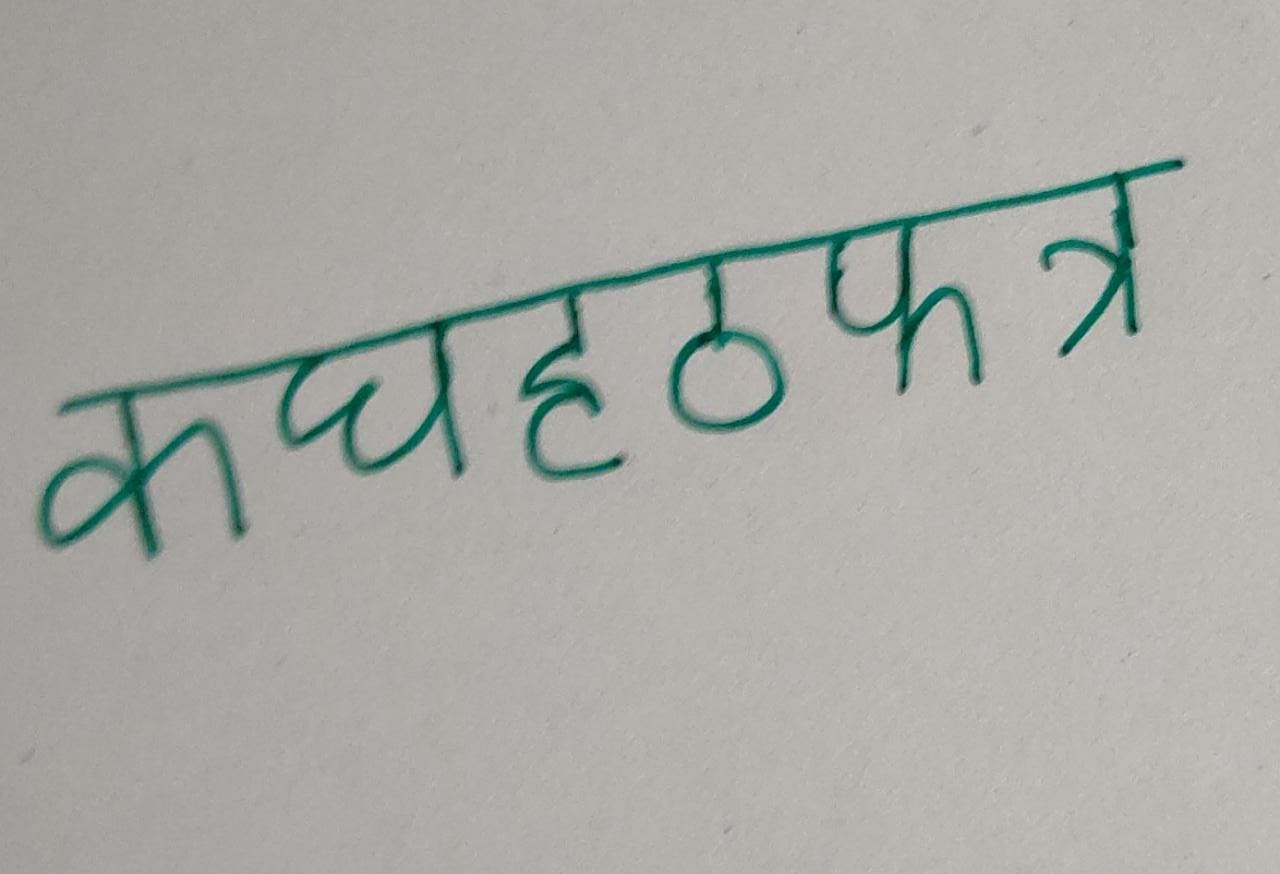 कघहठफत्र